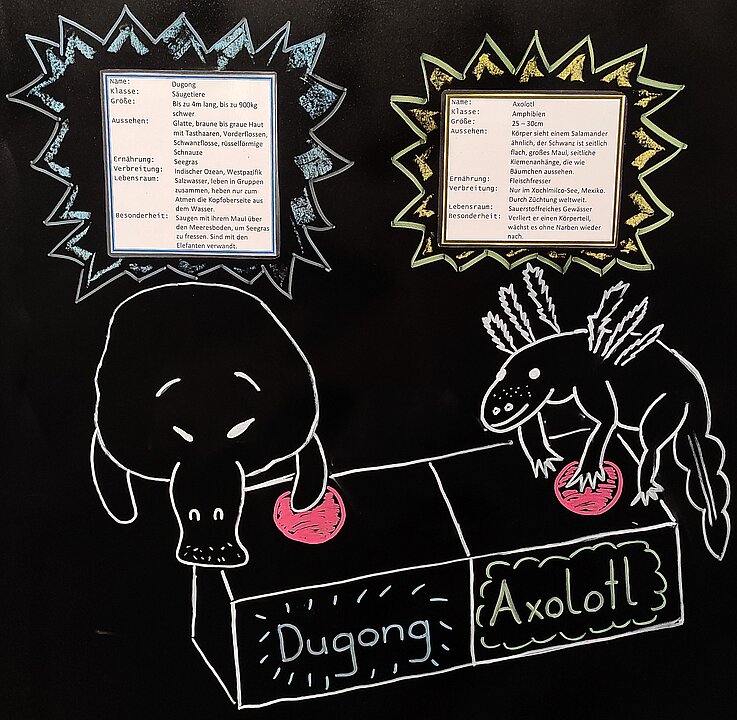 Name: Dugong
Klasse: Säugetiere
Größe: Bis zu 4m lang, bis zu 900kg
schwer
Aussehen: Glatte, braune bis graue Haut
mit Tasthaaren, Vorderflossen,
Schwanzflosse, rüsselförmige
Schnauze
Ernährung: Seegras
Verbreitung: Indischer Ozean, Westpazifik
Lebensraum: Salzwasser, leben in Gruppen
zusammen, heben nur zum
Atmen die Kopfoberseite aus
dem Wasser.
Besonderheit: Saugen mit ihrem Maul über
den Meeresboden, um Seegras
zu fressen. Sind mit den
Elefanten verwandt.
Name: Axolotl
Klasse: Amphibien
Größe: 25 – 30cm
Aussehen: Körper sieht einem Salamander
ähnlich, der Schwanz ist seitlich
flach, großes Maul, seitliche
Kiemenanhänge, die wie
Bäumchen aussehen.
Ernährung: Fleischfresser
Verbreitung: Nur im Xochimilco-See, Mexiko.
Durch Züchtung weltweit.
Lebensraum: Sauerstoffreiches Gewässer
Besonderheit: Verliert er einen Körperteil,
wächst es ohne Narben wieder
nach.
Dugong
Axolotl